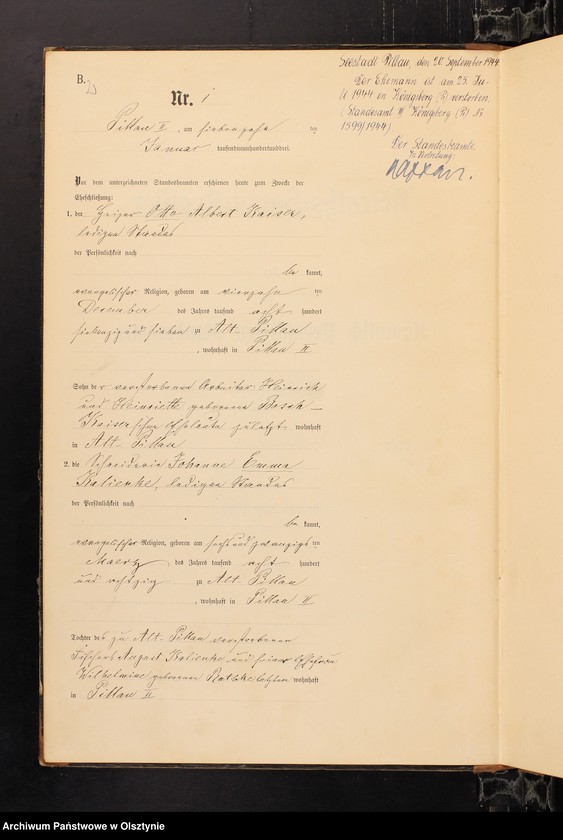 B.
Nr. 1
Pillau II, am siebenzehn ten
Januar tausendneunhundertunddrei.
Vor dem unterzeichneten Standesbeamten erschienen heute zum Zwecke der
Eheschließung:
1. der Heizer Otto Albert Kaiser,
ledigen Standes
der Persönlichkeit nach
be kannt,
evangelischer Religion, geboren am vierzehn ten
Dezember des Jahres tausend acht hundert
siebenzig und sieben zu Alt-Pillau
, wohnhaft in Pillau II
Sohn der verstorbenen Arbeiter Heinrich
und Henriette geborene
Kaiser'schen Eheleute zuletzt wohnhaft
in Alt-Pillau
2. die Schneiderin Johanne Emma
Kalienke, ledigen Standes
der Persönlichkeit nach
be kannt,
evangelischer Religion, geboren am sechsundzwanzigs ten
Maerz des Jahres tausend acht hundert
und achtzig zu Alt-Pillau
, wohnhaft in Pillau II
Tochter des zu Alt-Pillau verstorbenen
Fischers August Kalienke und seiner Ehefrau
Wilhelmine geborenen letztere wohnhaft
in Pillau II
Seestadt Pillau, den 20. September 1944
Der Ehemann ist am 23. Ju-
li 1944 in Königsberg (Pr) verstorben.
(Standesamt Königsberg (Pr) Nr
1399/1944)
Der Standesbeamte
In Vertretung:
Archiwum Państwowe w Olsztynie